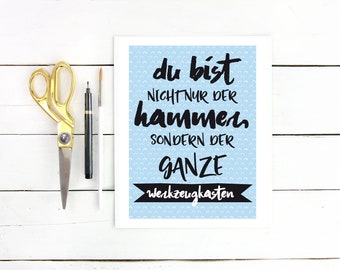 du bist
NICHT NUR DER
hammer,
SONDERN DER
GANZE
werkzeugkasten